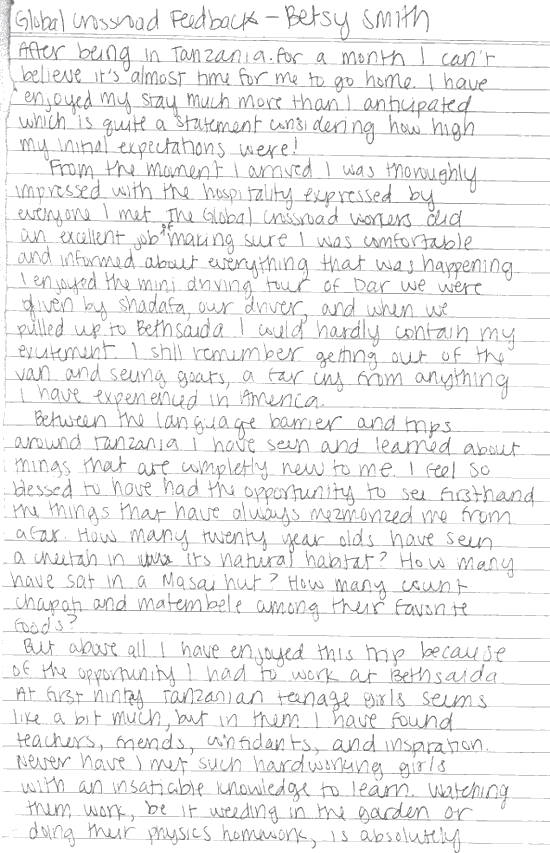 Global Crossroad Feedback - Betsy Smith
After being in Tanzania for a month I can't
believe it's almost time for me to go home. I have
enjoyed my stay much more than I anticipated
which is quite a statement considering how high
my initial expectations were!
From the moment I arrived I was thoroughly
impressed with the hospitality expressed by
everyone I met. The Global Crossroad workers did
an excellent job of making sure I was comfortable
and informed about everything that was happening
I enjoyed the mini driving tour of Dar we were
given by Shadafa, our driver, and when we
pulled up to Bethsaida I could hardly contain my
excitement. I still remember getting out of the
van and seeing goats, a far cry from anything
I have experienced in America.
Between the language barrier and trips
around Tanzania I have seen and learned about
things that are completly new to me. I feel so
blessed to have had the opportunity to see firsthand
the things that have always mezmorized me from
afar. How many twenty year olds have seen
a cheetah in its natural habitat? How many
have sat in a Masai hut? How many count
chapati and matembele among their favorite
foods?
But above all I have enjoyed this trip because
of the opportunity I had to work at Bethsaida.
At first ninty Tanzanian teenage girls seems
like a bit much, but in them I have found
teachers, friends, confidants, and inspiration.
Never have I met such hardworking girls
with an insatiable knowledge to learn. Watching
them work, be it weeding in the garden or
doing their physics homework, is absolutely